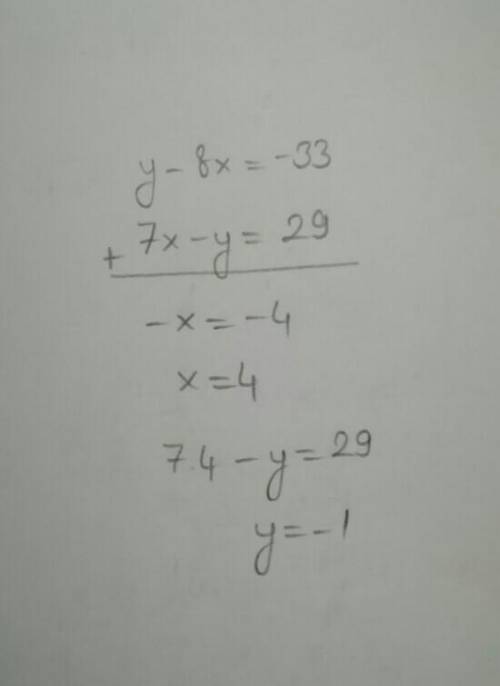 y - 8x = -33
+ 7x - y = 29
-x = -4
x = 4
7.4 - y = 29
y = -1